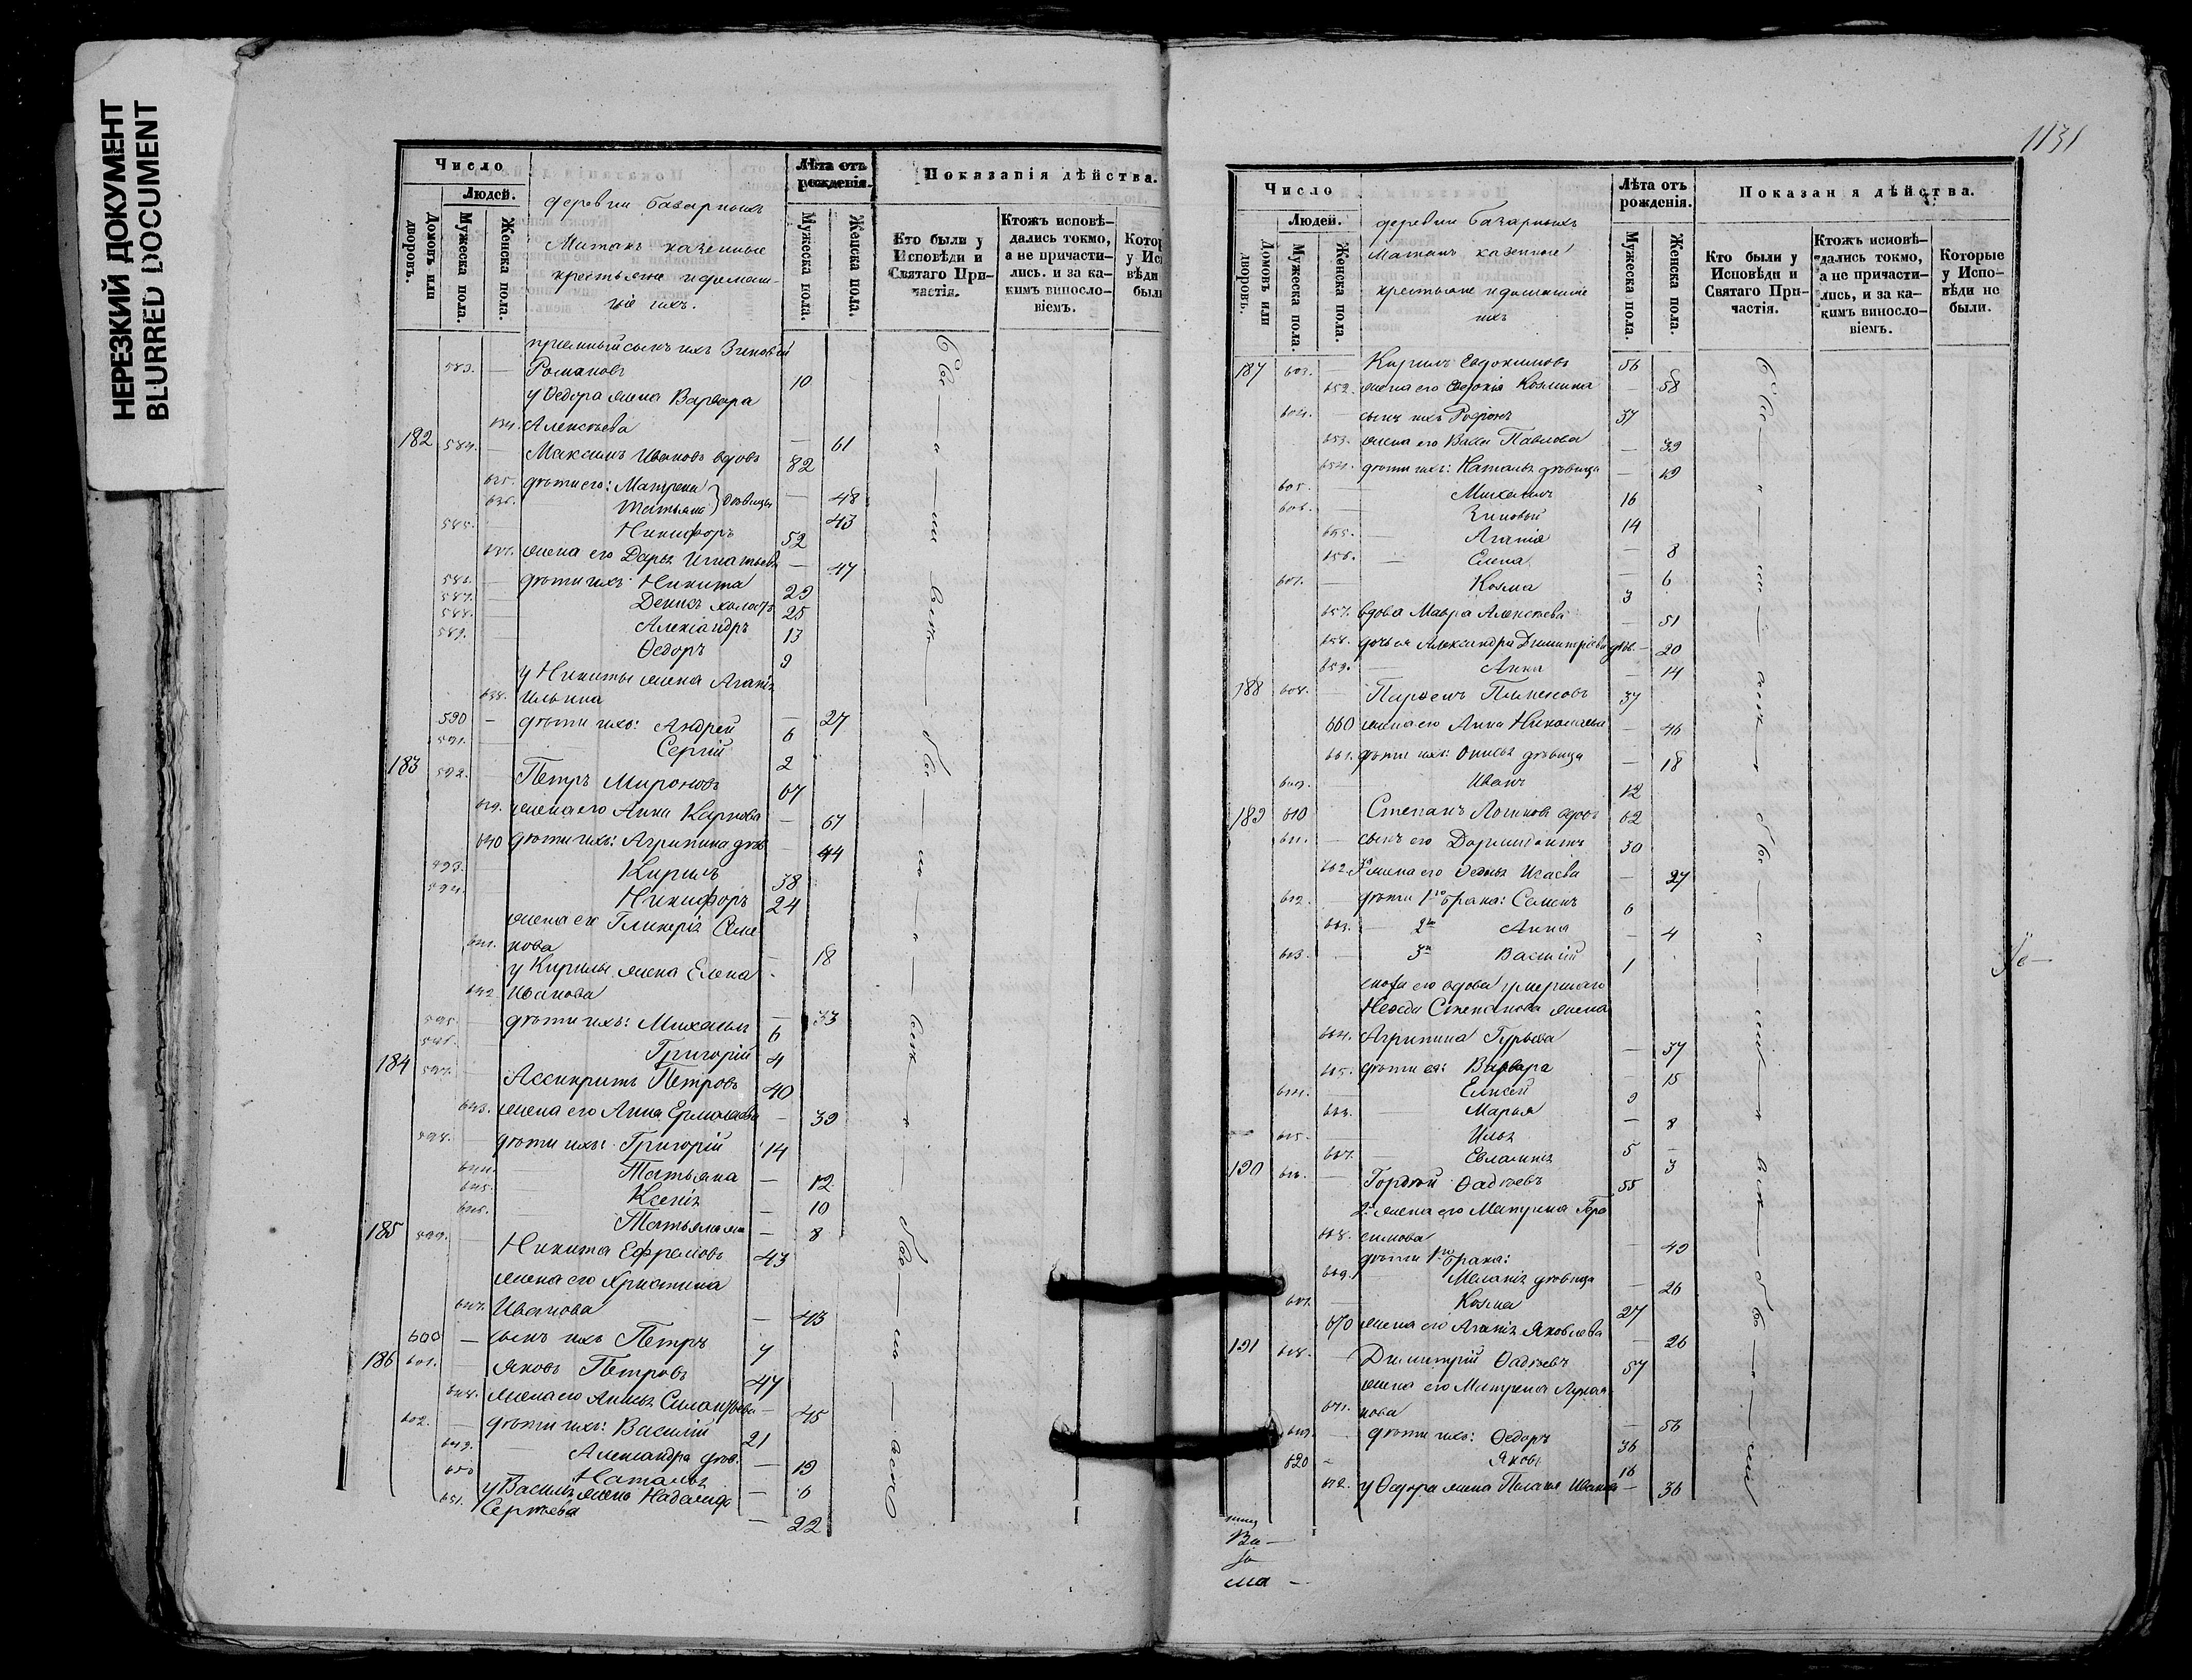 НЕРЕЗКИЙ ДОКУМЕНТ
BLURRED DOCUMENT
Число
Людей.
Домовъ или дворовъ.
Мужеска пола.
Женска пола.
деревни Базарныхъ
Матакъ казенные
крестьяне и домаш-
ніе ихъ.
Лѣта отъ рожденія.
Мужеска пола.
Женска пола.
Показанія дѣйства.
Кто были у Исповѣди и Святаго Причастія.
Ктожъ исповѣ-
дались токмо,
а не причасти-
лись. и за ка-
кимъ винословіемъ.
пріемный сынъ ихъ Зиновей
583. — Романовъ 10
у Ѳедора жена Варвара
634. Алексѣева — 61
182 584. — Максимъ Ивановъ вдовъ 82
635. дѣти его: Матрена — 48
636. Татьяна } дѣвицы 43
585. — Никифоръ 52
637. жена его Дарья Игнатьева — 47
586. — дѣти ихъ: Никита 29
587. — Денисъ холостъ 25
588. — Александръ 13
589. — Ѳедоръ 9
у Никиты жена Агапія
638. Ильина — 27
590 — дѣти ихъ: Андрей 6
591. — Сергій 2
183 592. — Петръ Мироновъ 67
639. жена его Анна Карпова — 67
640 дѣти ихъ: Агрипина дѣв. — 44
593. — Кирилъ 38
594. — Никифоръ 24
жена его Гликерія Семе
641. нова — 18
у Кирилы жена Елена
642 Иванова — 33
595. — дѣти ихъ: Михаилъ 6
596. — Григорій 4
184 597. — Ассинкритъ Петровъ 40
643. жена его Анна Ермолаева — 39
598. — дѣти ихъ: Григорій 14
644. — Татьяна — 12
645. — Ксенія — 10
646. — Татьяна — 8
185 599. — Никита Ефремовъ 43
жена его Христина
647. Иванова — 43
600 — сынъ ихъ Петръ 7
186 601. — Яковъ Петровъ 47
648. жена его Анисья — 45
602. — дѣти ихъ: Василій 21
649. — Александра дѣв. — 19
650 Наталья — 6
у Василья жена
651. Сергѣева — 22
1131
Число
Людей.
Домовъ или дворовъ.
Мужеска пола.
Женска пола.
деревни Базарныхъ
Матакъ казенные
крестьяне и домашніе
ихъ
Лѣта отъ рожденія.
Мужеска пола.
Женска пола.
Показан я дѣйства.
Кто были у Исповѣди и Святаго Причастія.
Ктожъ исповѣ-
дались токмо,
а не причасти-
лись, и за ка-
кимъ винословіемъ.
Которые у Исповѣди не были.
187 603. — Кирилъ Евдокимовъ 56
652. жена его Евдокія Козмина — 58
604. — сынъ ихъ Родіонъ 37
653. жена его Васса Павлова — 39
654. дѣти ихъ: Наталья дѣвица — 19
605. — Михаилъ 16
606. — Зиновій 14
655. — Агапія — 8
656. — Елена — 6
607. — Козма 3
657. вдова Мавра Алексѣева — 51
658. дочь ея Александра Димитріева дѣв. — 20
659. — Анна — 14
188 608. — Парѳенъ Пименовъ 37
660 жена его Анна Николаева — 46
661. дѣти ихъ: Анисья дѣвица — 18
609. — Иванъ 12
189 610 Степанъ Логиновъ вдовъ 62
611. — сынъ его Дормидонтъ 30
662. 3я жена его Ѳедосья Исаева — 27
612. — дѣти 1го брака: Семенъ 6
663. — 2го Анна — 4
613. — 3го Василій 1
сноха его вдова умершаго
Степанова жена
664. Агрипина Гурьева — 37
665. дѣти ея: Варвара — 15
614. — Елисей 9
666. Марья — 8
615. — Илья 5 —
667. — Евлампія 3
190 616. — Гордѣй Ѳадѣевъ 55
2я жена его Матрена Гера
668. симова — 49
дѣти 1го брака:
669. Меланія дѣвица — 26
617. — Козма 27
670 жена его Агапія Яковлева — 26
191 618. — Димитрій Ѳадѣевъ 57
жена его Матрена Лукоя
671. нова — 56
619. — дѣти ихъ: Ѳедоръ 36
620 — Яковъ 16
672. у Ѳедора жена Пелагея Иванова — 36
Ва —
ма —